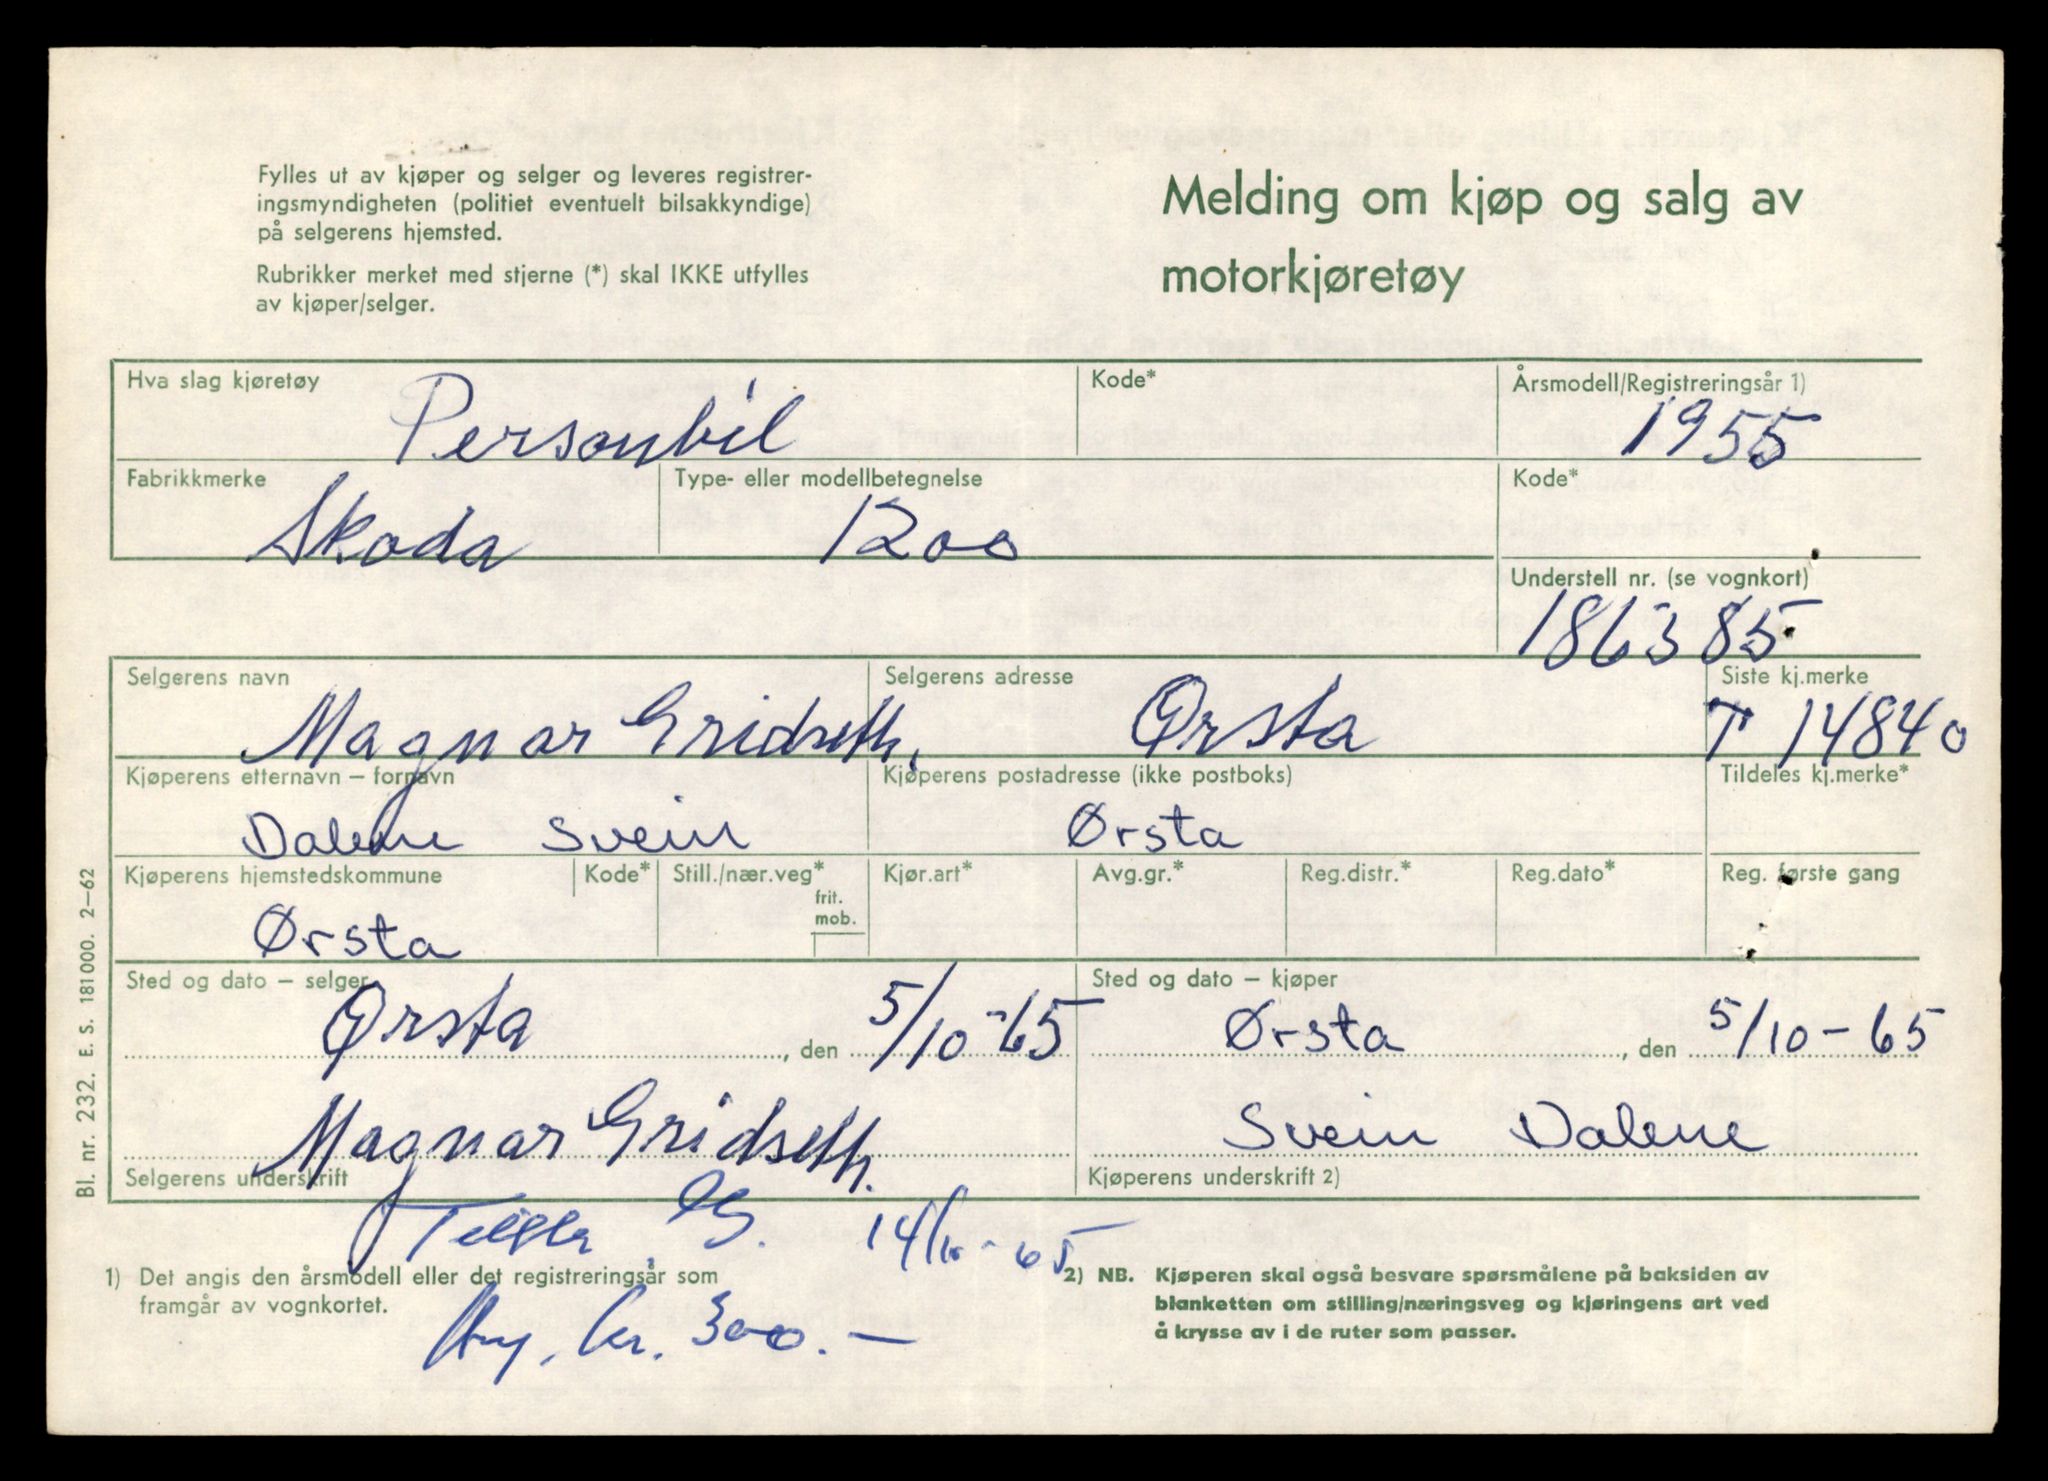 Fylles ut av kjøper og selger og leveres registrer-
ingsmyndigheten (politiet eventuelt bilsakkyndige)
på selgerens hjemsted.
Rubrikker merket med stjerne (*) skal IKKE utfylles
av kjøper/selger.
Melding om kjøp og salg av
motorkjøretøy
Hva slag kjøretøy
Personbil
Kode*
Årsmodell/Registreringsår 1)
1955
Fabrikkmerke
Skoda
Type- eller modellbetegnelse
1200
Kode*
Understell nr. (se vognkort)
186385
Selgerens navn
Magnar Gridseth.
Selgerens adresse
Ørsta
Siste kj.merke
T 14840
Kjøperens etternavn – fornavn
Dalene Svein
Kjøperens postadresse (ikke postboks)
Ørsta
Tildeles kj.merke*
Kjøperens hjemstedskommune
Ørsta
Kode*
Still./nær.veg*
frit.
mob.
Kjør.art*
Avg.gr.*
Reg.distr.*
Reg.dato*
Reg. første gang
Sted og dato – selger
Ørsta, den 5/10-65
Magnar Gridseth.
Selgerens underskrift
Sted og dato – kjøper
Ørsta, den 5/10-65
Svein Dalene
Kjøperens underskrift 2)
14/10-65
kr. 300.-
1) Det angis den årsmodell eller det registreringsår som
framgår av vognkortet.
2) NB. Kjøperen skal også besvare spørsmålene på baksiden av
blanketten om stilling/næringsveg og kjøringens art ved
å krysse av i de ruter som passer.
Bl. nr. 232. E. S. 181000. 2–62